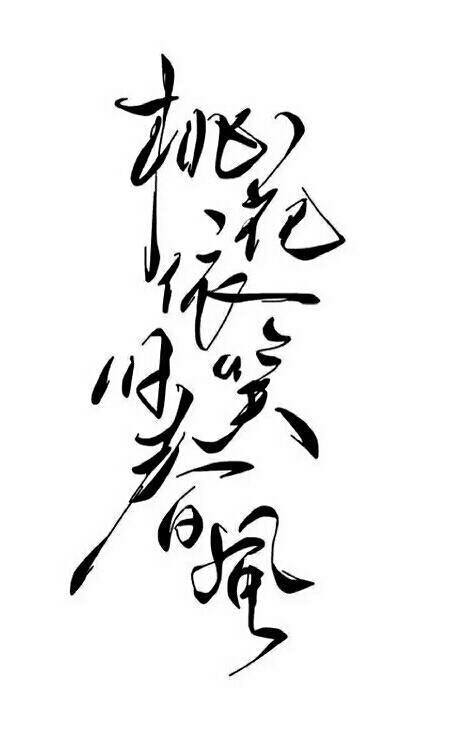 桃花依旧笑春风